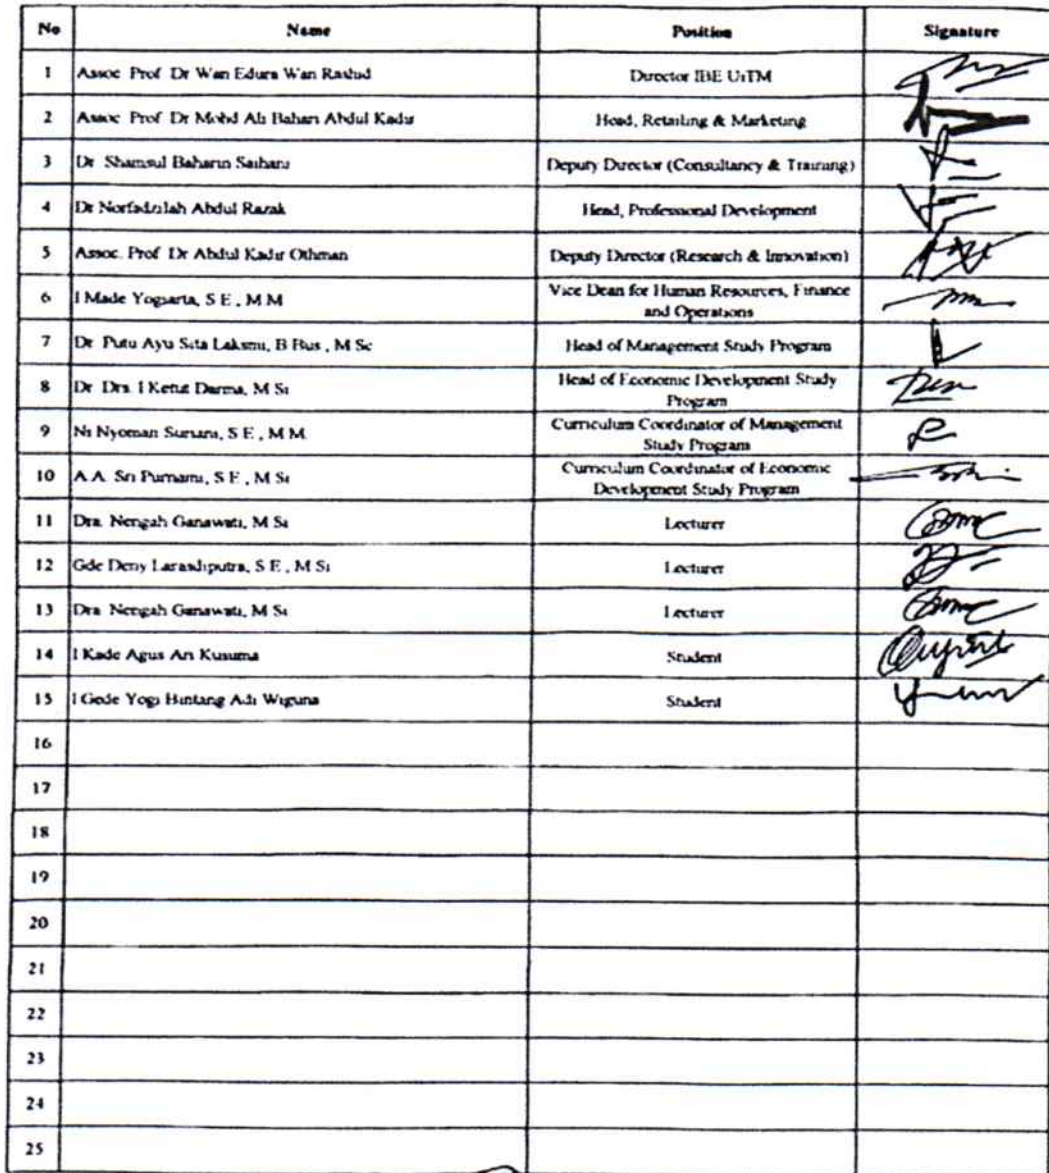 No Name Position Signature
1 Assoc. Prof. Dr Wan Edura Wan Rashid Director IBE UiTM
2 Assoc. Prof. Dr Mohd Ali Bahari Abdul Kadir Head, Retailing & Marketing
3 Dr. Shamsul Baharin Saihani Deputy Director (Consultancy & Training)
4 Dr Norfadzilah Abdul Razak Head, Professional Development
5 Assoc. Prof. Dr Abdul Kadir Othman Deputy Director (Research & Innovation)
6 I Made Yogiarta, S.E., M.M Vice Dean for Human Resources, Finance
and Operations
7 Dr. Putu Ayu Sita Laksmi, B.Bus., M.Sc Head of Management Study Program
8 Dr. Drs. I Ketut Darma, M.Si Head of Economic Development Study
Program
9 Ni Nyoman Suriani, S.E., M.M. Curriculum Coordinator of Management
Study Program
10 A.A. Sri Purnami, S.E., M.Si Curriculum Coordinator of Economic
Development Study Program
11 Dra. Nengah Ganawati, M.Si Lecturer
12 Gde Deny Larasdiputra, S.E., M.Si Lecturer
13 Dra. Nengah Ganawati, M.Si Lecturer
14 I Kade Agus Ari Kusuma Student
15 I Gede Yogi Bintang Adi Wiguna Student
16
17
18
19
20
21
22
23
24
25